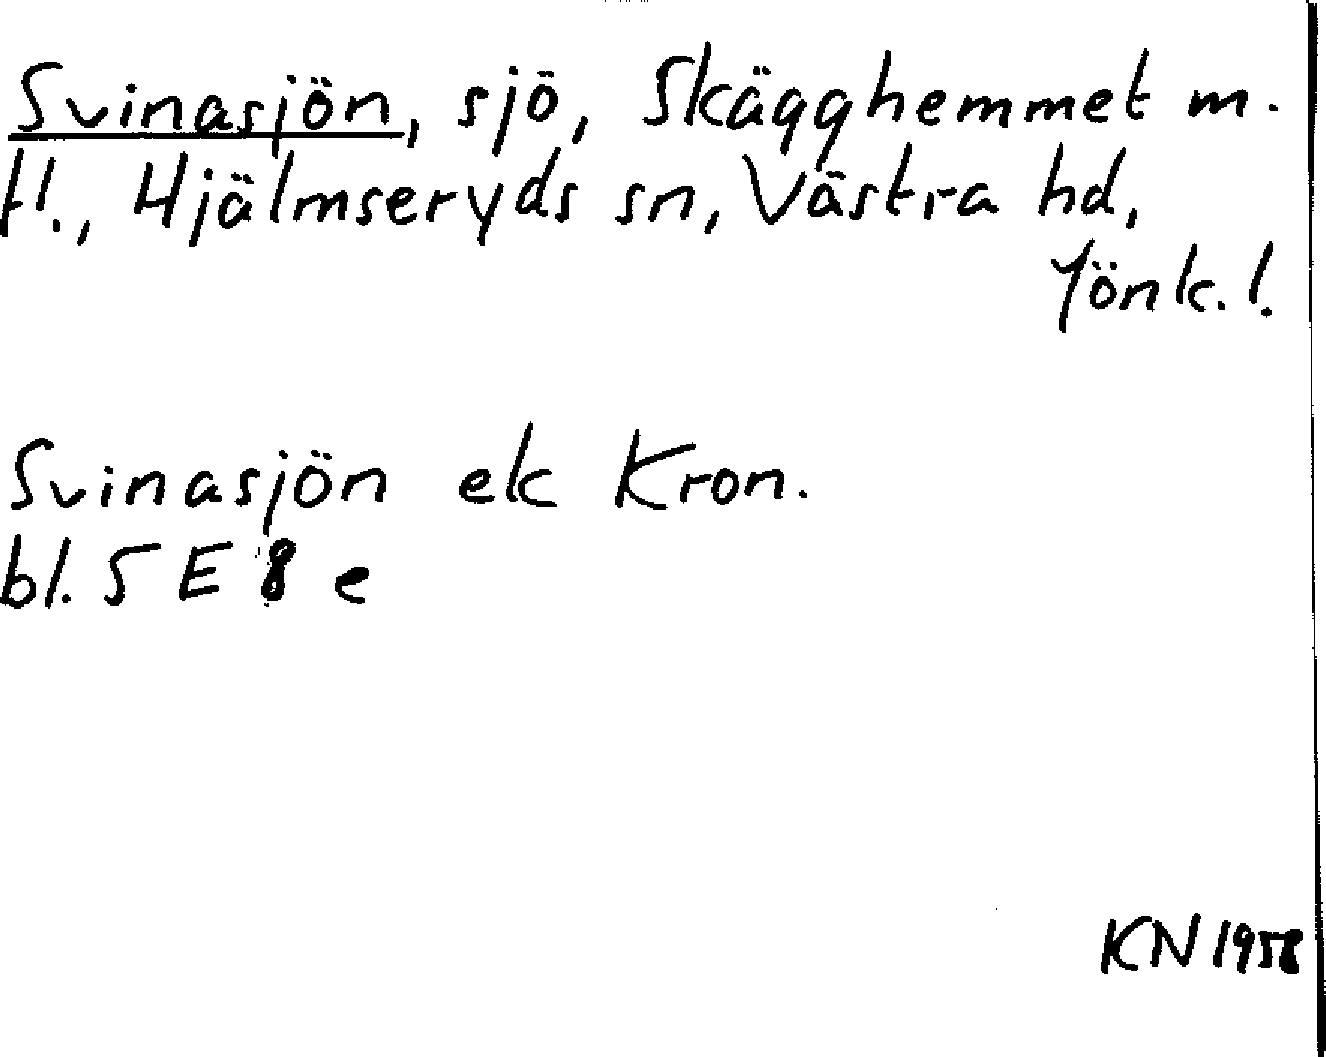 Svinasjön, sjö, Skägghemmet m.
fl., Hjälmseryds sn, Västra hd,
Jönk. l.
Svinasjön ek Kron.
bl. 5 E 8 e
KN 1958